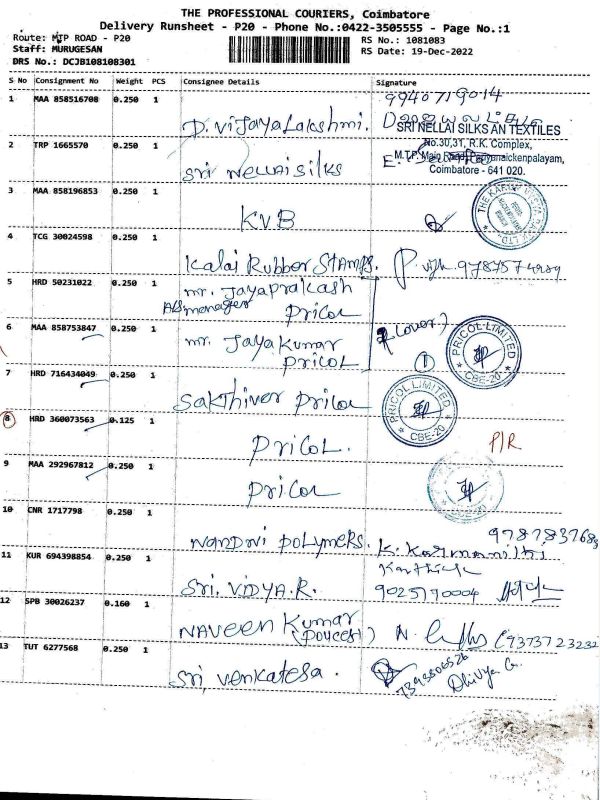 THE PROFESSIONAL COURIERS, Coimbatore
Delivery Runsheet - P20 - Phone No.:0422-3505555 - Page No.:1
Route: MTP ROAD - P20
RS No.: 1081083
Staff: MURUGESAN
RS Date: 19-Dec-2022
DRS No.: DCJB108108301
S No Consignment No Weight PCS Consignee Details Signature
1 MAA 858516708 0.250 1 D. Vijayalakshmi. 9940719014
SRI NELLAI SILKS AN TEXTILES
No.30,31, R.K. Complex,
2 TRP 1665570 0.250 1 Sri Nellai silks
M.T.P. Main Road, Periyanaickenpalayam,
Coimbatore - 641 020.
3 MAA 858196853 0.250 1 KVB
4 TCG 30024598 0.250 1 Kalai Rubber Stamps.
5 HRD 50231022 0.250 1 mr. Jayaprakash
manager Pricol
6 MAA 858753847 0.250 1 mr. Jayakumar
Pricol
(over)
1
PRICOL LIMITED
CBE-20
7 HRD 716434049 0.250 1 Sakthivel Pricol
PRICOL LIMITED
CBE-20
8 HRD 360073563 0.125 1 Pricol. P/R
9 MAA 292967812 0.250 1 Pricol
10 CNR 1717798 0.250 1 Nandni Polymers.
11 KUR 694398854 0.250 1 Sri. Vidya.R. 9025170004
12 SPB 30026237 0.160 1 Naveen Kumar
13 TUT 6277568 0.250 1 Sri, venkatesa. 7398806526 Dhivya G.